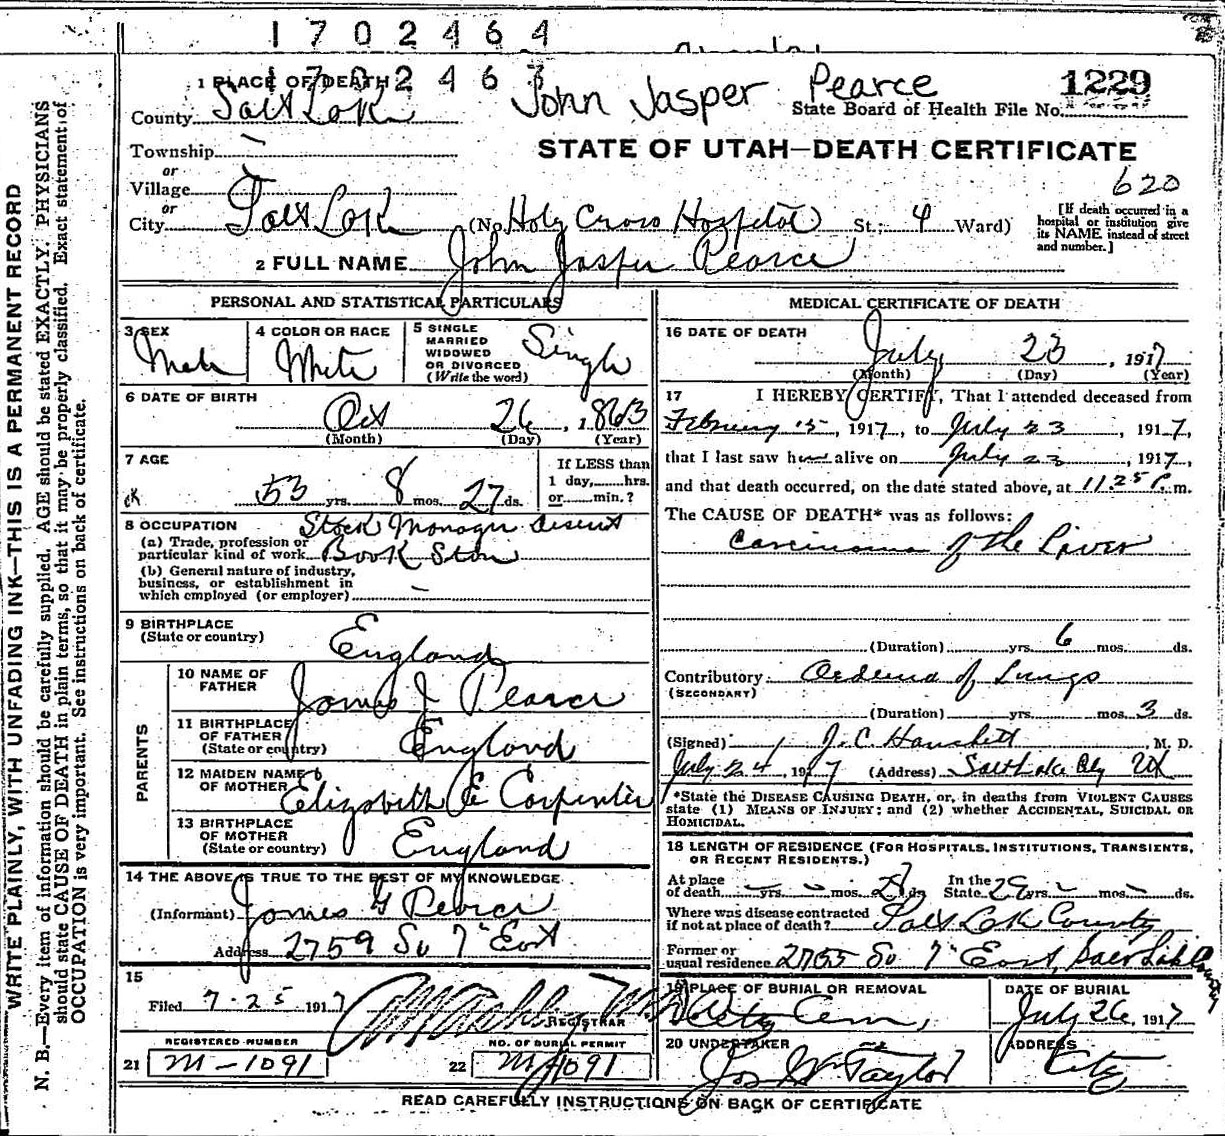 1702464
1702463
John Jasper Pearce
1229
1 PLACE OF DEATH
State Board of Health File No.
County Salt Lake
STATE OF UTAH—DEATH CERTIFICATE
Township
or
Village
620
or
City Salt Lake (No. Holy Cross Hospital St.; 4 Ward)
[If death occurred in a hospital or institution give its NAME instead of street and number.]
2 FULL NAME John Jasper Pearce
PERSONAL AND STATISTICAL PARTICULARS
3 SEX Male
4 COLOR OR RACE White
5 SINGLE MARRIED WIDOWED OR DIVORCED (Write the word) Single
6 DATE OF BIRTH
Oct 26, 1863
(Month) (Day) (Year)
7 AGE
53 yrs. 8 mos. 27 ds.
If LESS than 1 day,......hrs. or......min.?
8 OCCUPATION Stock Manager Deseret
(a) Trade, profession or particular kind of work Book Store
(b) General nature of industry, business, or establishment in which employed (or employer)
9 BIRTHPLACE (State or country) England
PARENTS
10 NAME OF FATHER James J Pearce
11 BIRTHPLACE OF FATHER (State or country) England
12 MAIDEN NAME OF MOTHER Elizabeth E Carpenter
13 BIRTHPLACE OF MOTHER (State or country) England
14 THE ABOVE IS TRUE TO THE BEST OF MY KNOWLEDGE
(Informant) James G Pearce
Address 2759 So 7" East
15
Filed 7-25 1917
REGISTRAR
REGISTERED NUMBER
21 M-1091
NO. OF BURIAL PERMIT
22 M-1091
MEDICAL CERTIFICATE OF DEATH
16 DATE OF DEATH
July 23, 1917
(Month) (Day) (Year)
17 I HEREBY CERTIFY, That I attended deceased from
February 15, 1917, to July 23, 1917,
that I last saw him alive on July 23, 1917,
and that death occurred, on the date stated above, at 11.25 P. m.
The CAUSE OF DEATH* was as follows:
Carcinoma of the Liver
(Duration) yrs. 6 mos. ds.
Contributory Oedema of Lungs
(SECONDARY)
(Duration) yrs. mos. 3 ds.
(Signed) J. C. Hanchett M. D.
July 24, 1917 (Address) Salt Lake City Ut
*State the DISEASE CAUSING DEATH, or, in deaths from VIOLENT CAUSES
state (1) MEANS OF INJURY; and (2) whether ACCIDENTAL, SUICIDAL OR
HOMICIDAL.
18 LENGTH OF RESIDENCE (FOR HOSPITALS, INSTITUTIONS, TRANSIENTS,
OR RECENT RESIDENTS.)
At place of death yrs. mos. ds. In the State 29 yrs. mos. ds.
Where was disease contracted if not at place of death? Salt Lake County
Former or usual residence 2755 So 7" East, Salt Lake County
19 PLACE OF BURIAL OR REMOVAL
City Cem,
DATE OF BURIAL
July 26, 1917
20 UNDERTAKER
Jos Wm Taylor
ADDRESS
City
READ CAREFULLY INSTRUCTIONS ON BACK OF CERTIFICATE
WRITE PLAINLY, WITH UNFADING INK—THIS IS A PERMANENT RECORD
N. B.—Every item of information should be carefully supplied. AGE should be stated EXACTLY. PHYSICIANS
should state CAUSE OF DEATH in plain terms, so that it may be properly classified. Exact statement of
OCCUPATION is very important. See instructions on back of certificate.